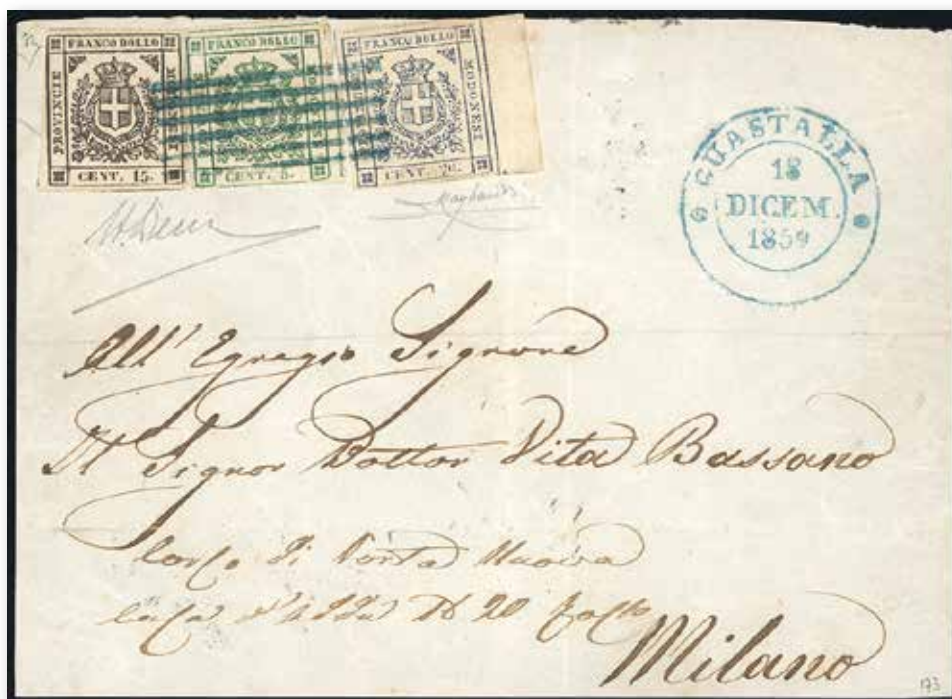 FRANCO BOLLO
PROVINCIE
MODONESI
CENT. 15.
FRANCO BOLLO
CENT. 5.
FRANCO BOLLO
MODONESI
CENT. 20.
GUASTALLA
18
DICEM.
1859
All' Egregio Signore
Il Signor Dottor Vita Bassano
Corso di Porta Nuova
Casa d'Adda N 20
Milano
173